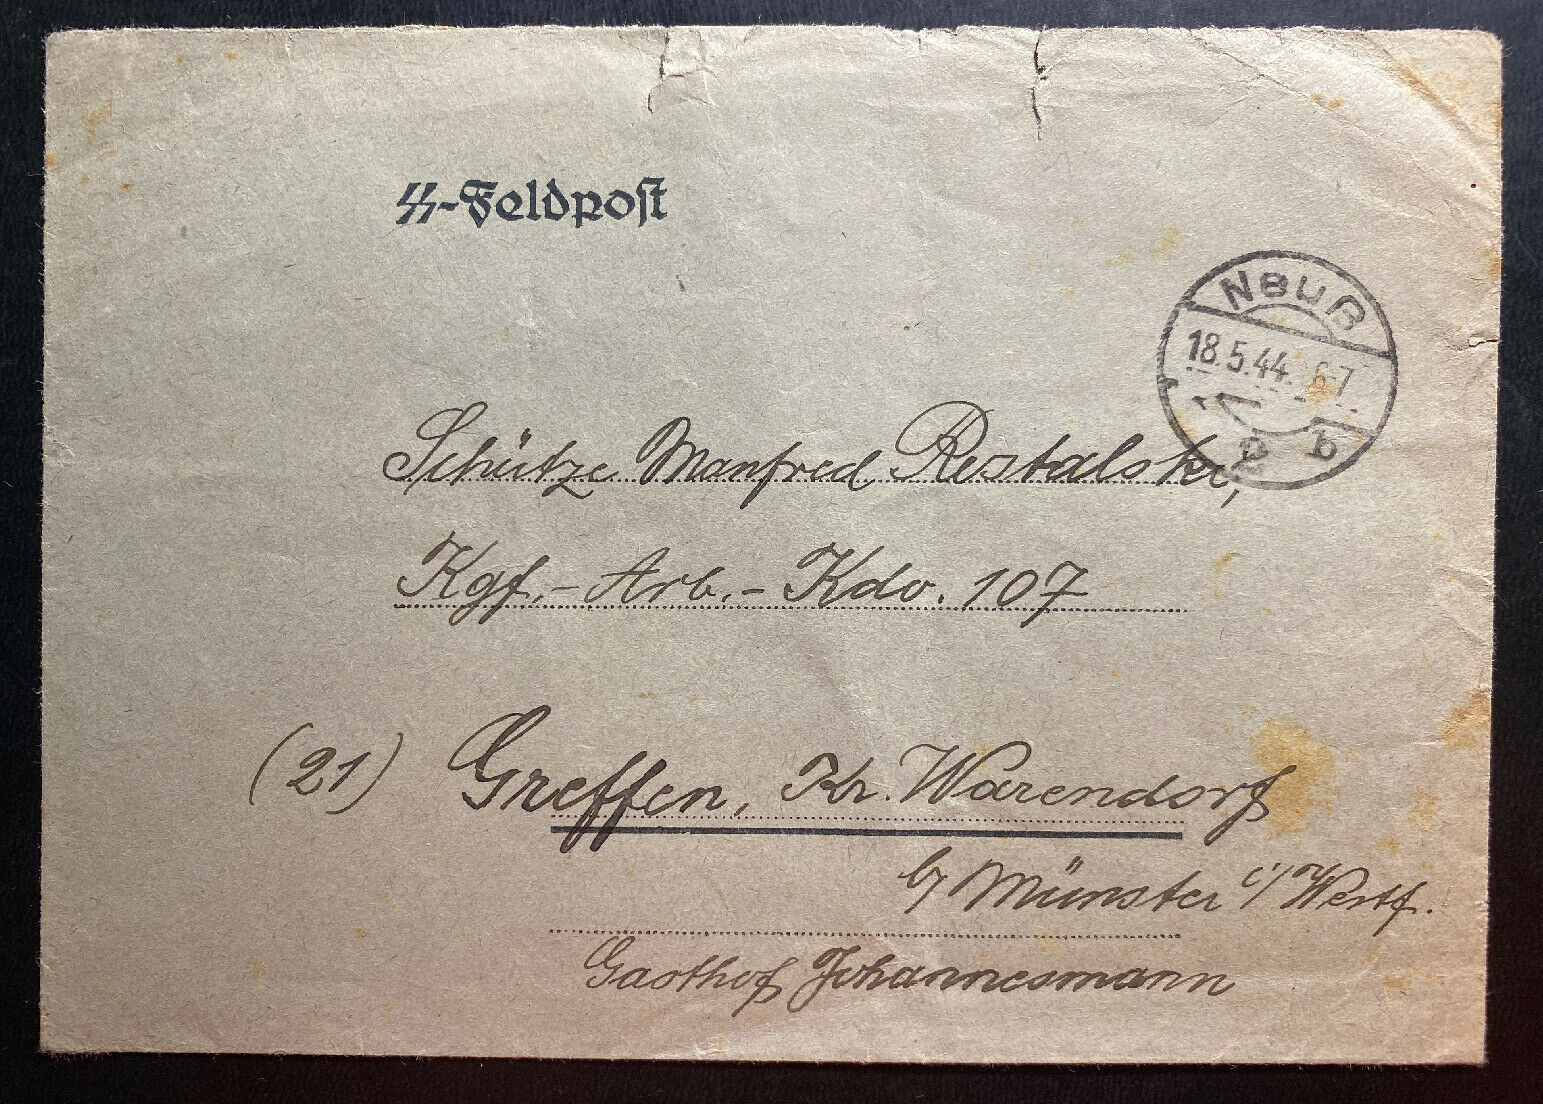 ᛋᛋ-Feldpost
Neuß
18.5.44. 6-7
2 b
Schütze Manfred Restalski,
Kgf.-Arb.-Kdo. 107
(21) Greffen, Kr. Warendorf
b/ Münster i/Westf.
Gasthof Johannesmann